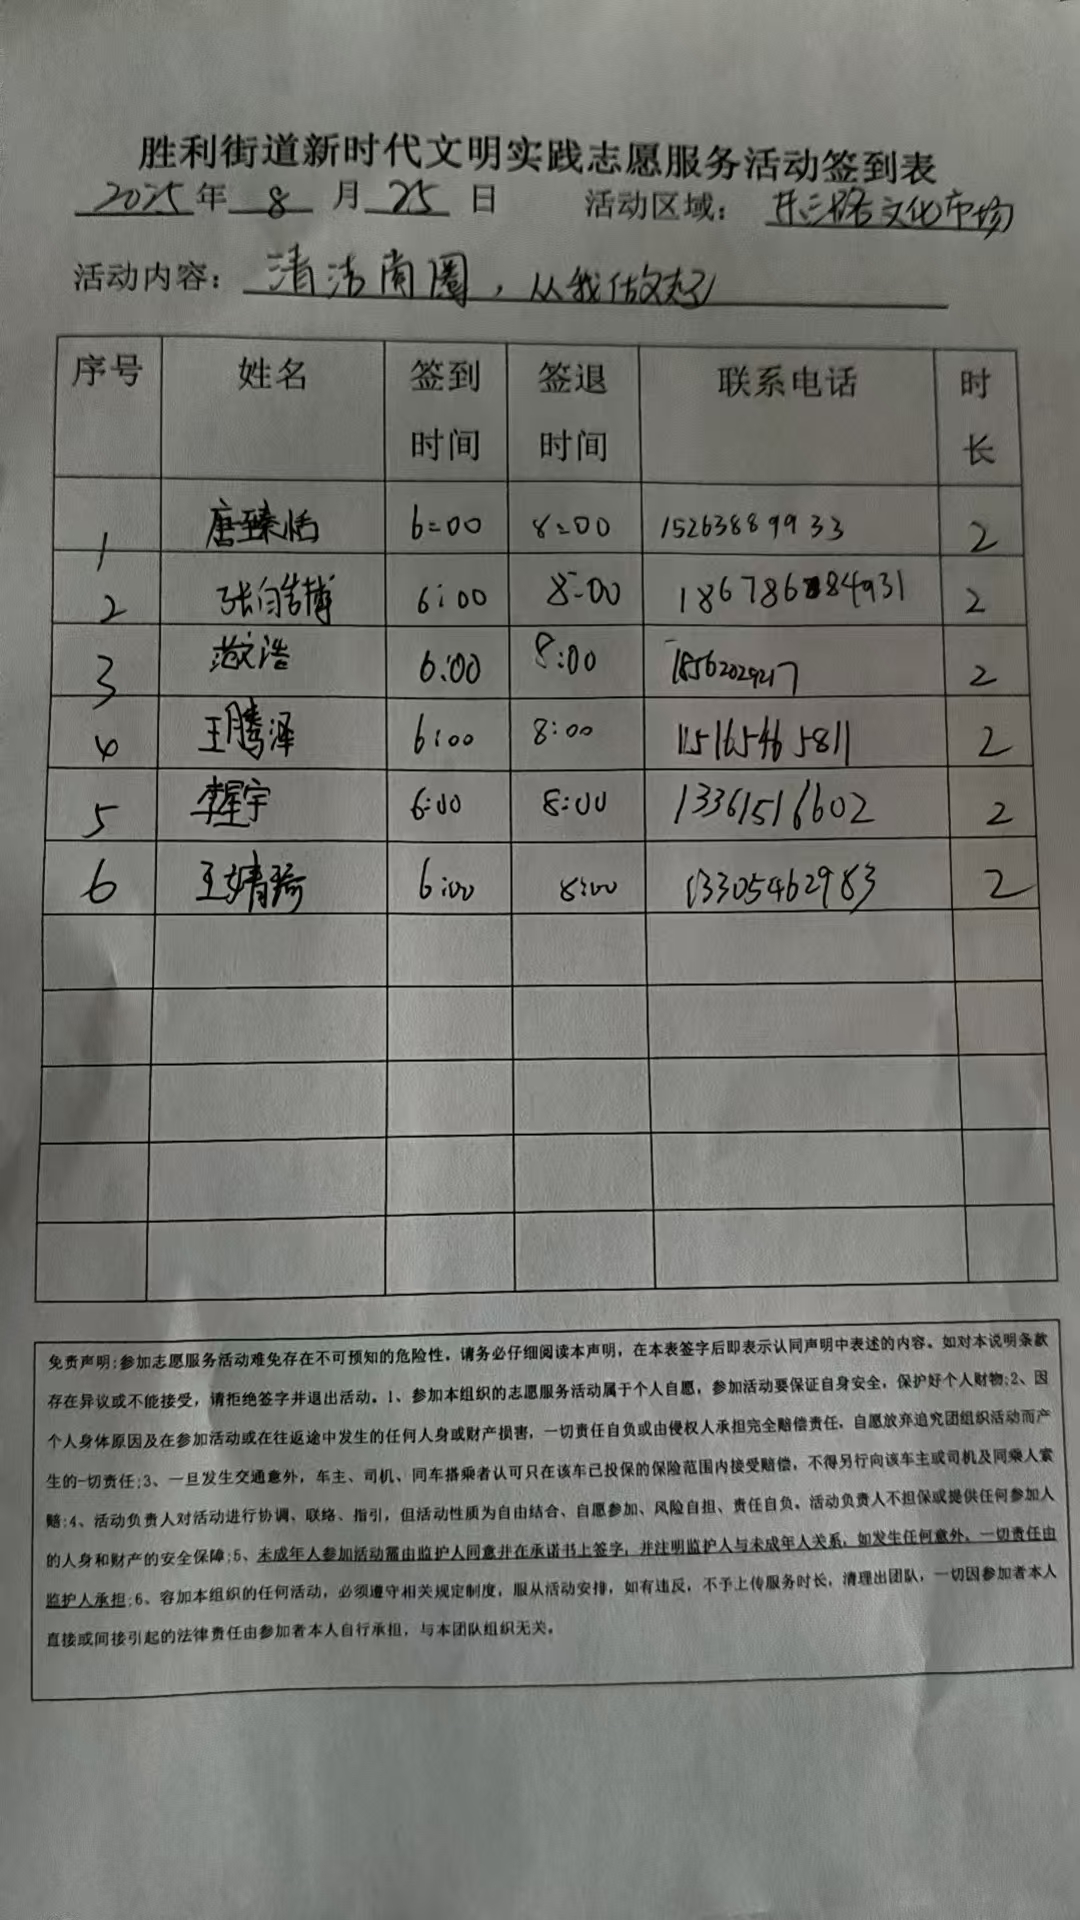 胜利街道新时代文明实践志愿服务活动签到表
2025年 8 月 25 日 活动区域： 东三路文化市场
活动内容： 清洁商圈，从我做起
序号 姓名 签到时间 签退时间 联系电话 时长
1 唐臻恬 6:00 8:00 15263889933 2
2 张皓博 6:00 8:00 18678684931 2
3 范文浩 6:00 8:00 18562029217 2
4 王腾泽 6:00 8:00 15165465811 2
5 李星宇 6:00 8:00 13361516602 2
6 王婧琦 6:00 8:00 13305462983 2
免责声明:参加志愿服务活动难免存在不可预知的危险性。请务必仔细阅读本声明，在本表签字后即表示认同声明中表述的内容。如对本说明条款
存在异议或不能接受，请拒绝签字并退出活动。1、参加本组织的志愿服务活动属于个人自愿，参加活动要保证自身安全，保护好个人财物;2、因
个人身体原因及在参加活动或在往返途中发生的任何人身或财产损害，一切责任自负或由侵权人承担完全赔偿责任，自愿放弃追究团组织活动而产
生的一切责任;3、一旦发生交通意外，车主、司机、同车搭乘者认可只在该车已投保的保险范围内接受赔偿，不得另行向该车主或司机及同乘人索
赔;4、活动负责人对活动进行协调、联络、指引，但活动性质为自由结合、自愿参加、风险自担、责任自负。活动负责人不担保或提供任何参加人
的人身和财产的安全保障;5、未成年人参加活动需由监护人同意并在承诺书上签字，并注明监护人与未成年人关系，如发生任何意外，一切责任由
监护人承担;6、容加本组织的任何活动，必须遵守相关规定制度，服从活动安排，如有违反，不予上传服务时长，清理出团队，一切因参加者本人
直接或间接引起的法律责任由参加者本人自行承担，与本团队组织无关。